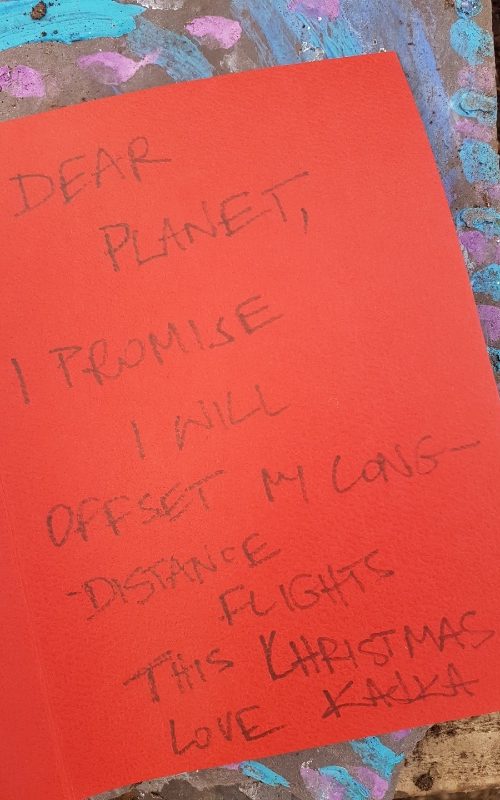 DEAR
PLANET,
I PROMISE
I WILL
OFFSET MY LONG-
-DISTANCE
FLIGHTS
THIS KHRISTMAS
LOVE KAJKA